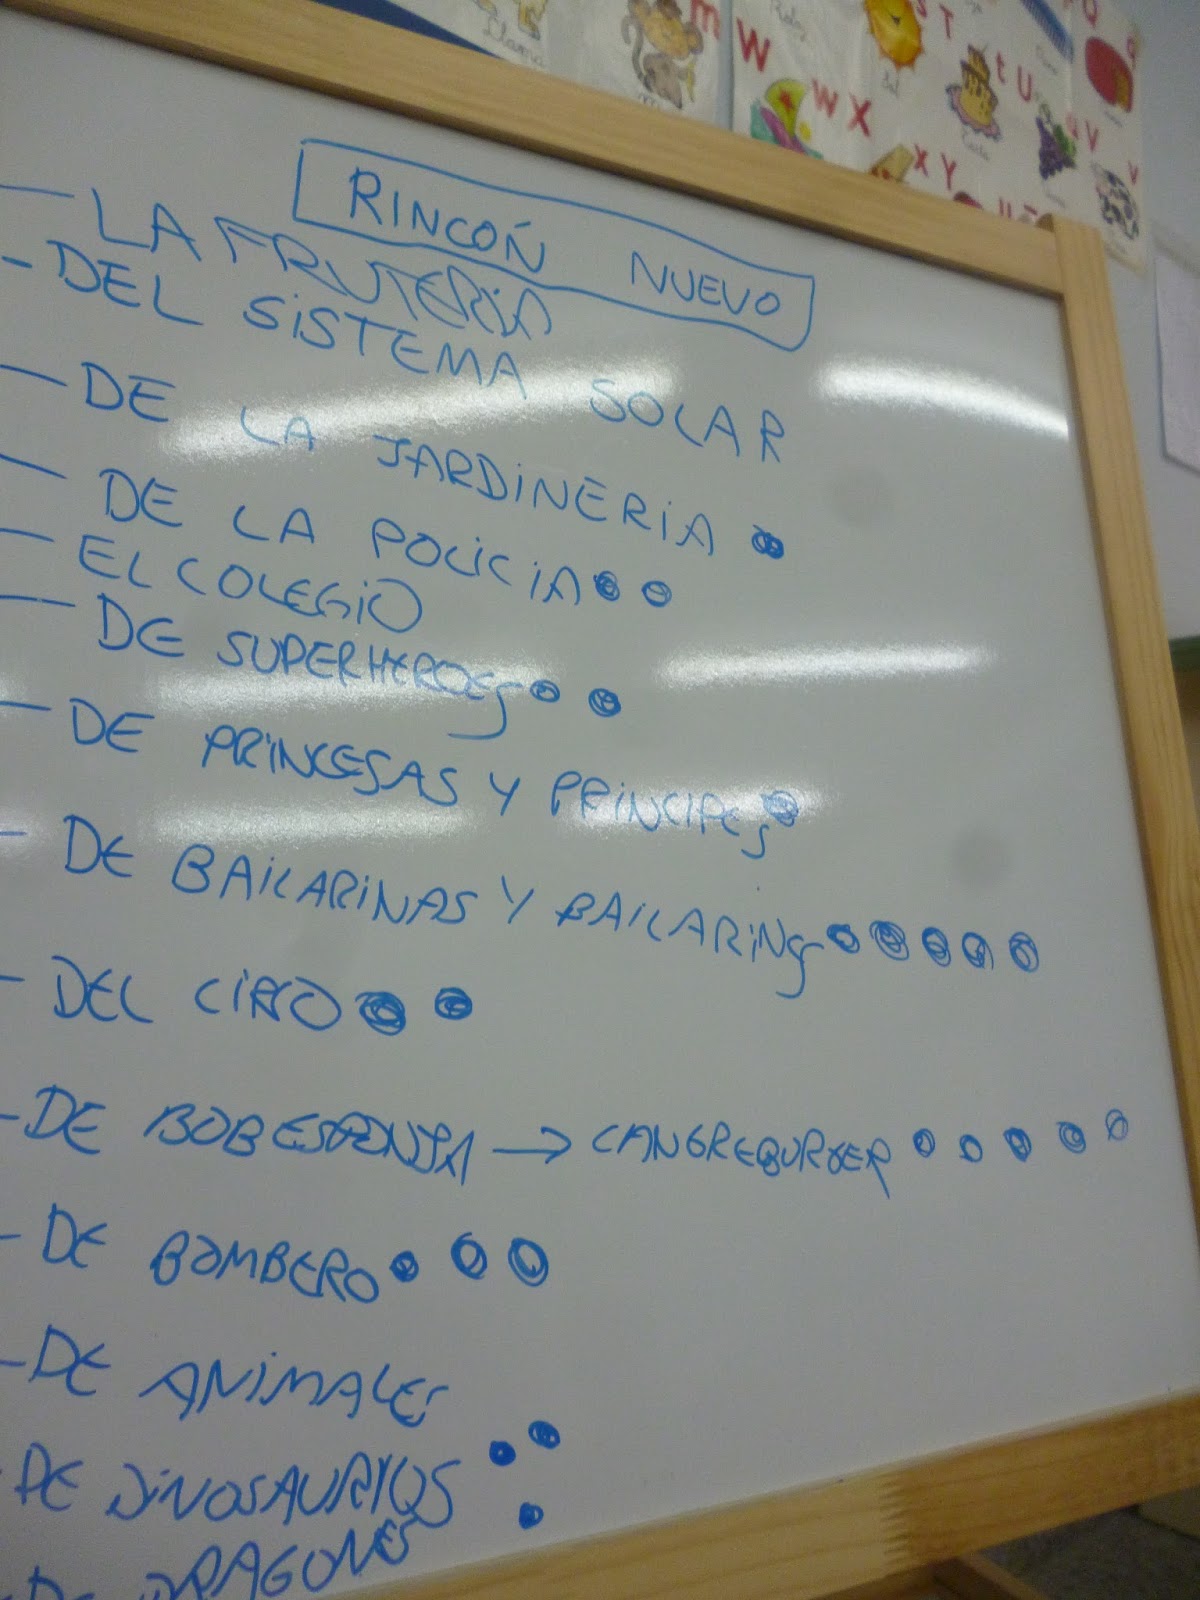 RINCOÑ NUEVO
- LA FRUTERIA
- DEL SISTEMA SOLAR
- DE LA JARDINERIA
- DE LA POLICIA
- EL COLEGIO
- DE SUPERHEROES
- DE PRINCESAS Y PRINCIPES
- DE BAILARINAS Y BAILARINS
- DEL CIRCO
- DE BOB ESPONJA → CANGREBURGER
- DE BOMBERO
- DE ANIMALES
- DE DINOSAURIOS
- DE DRAGONES
Llama
m
W
w X
Sol
S T
t U
Tarta
x Y
V
v
Q
q